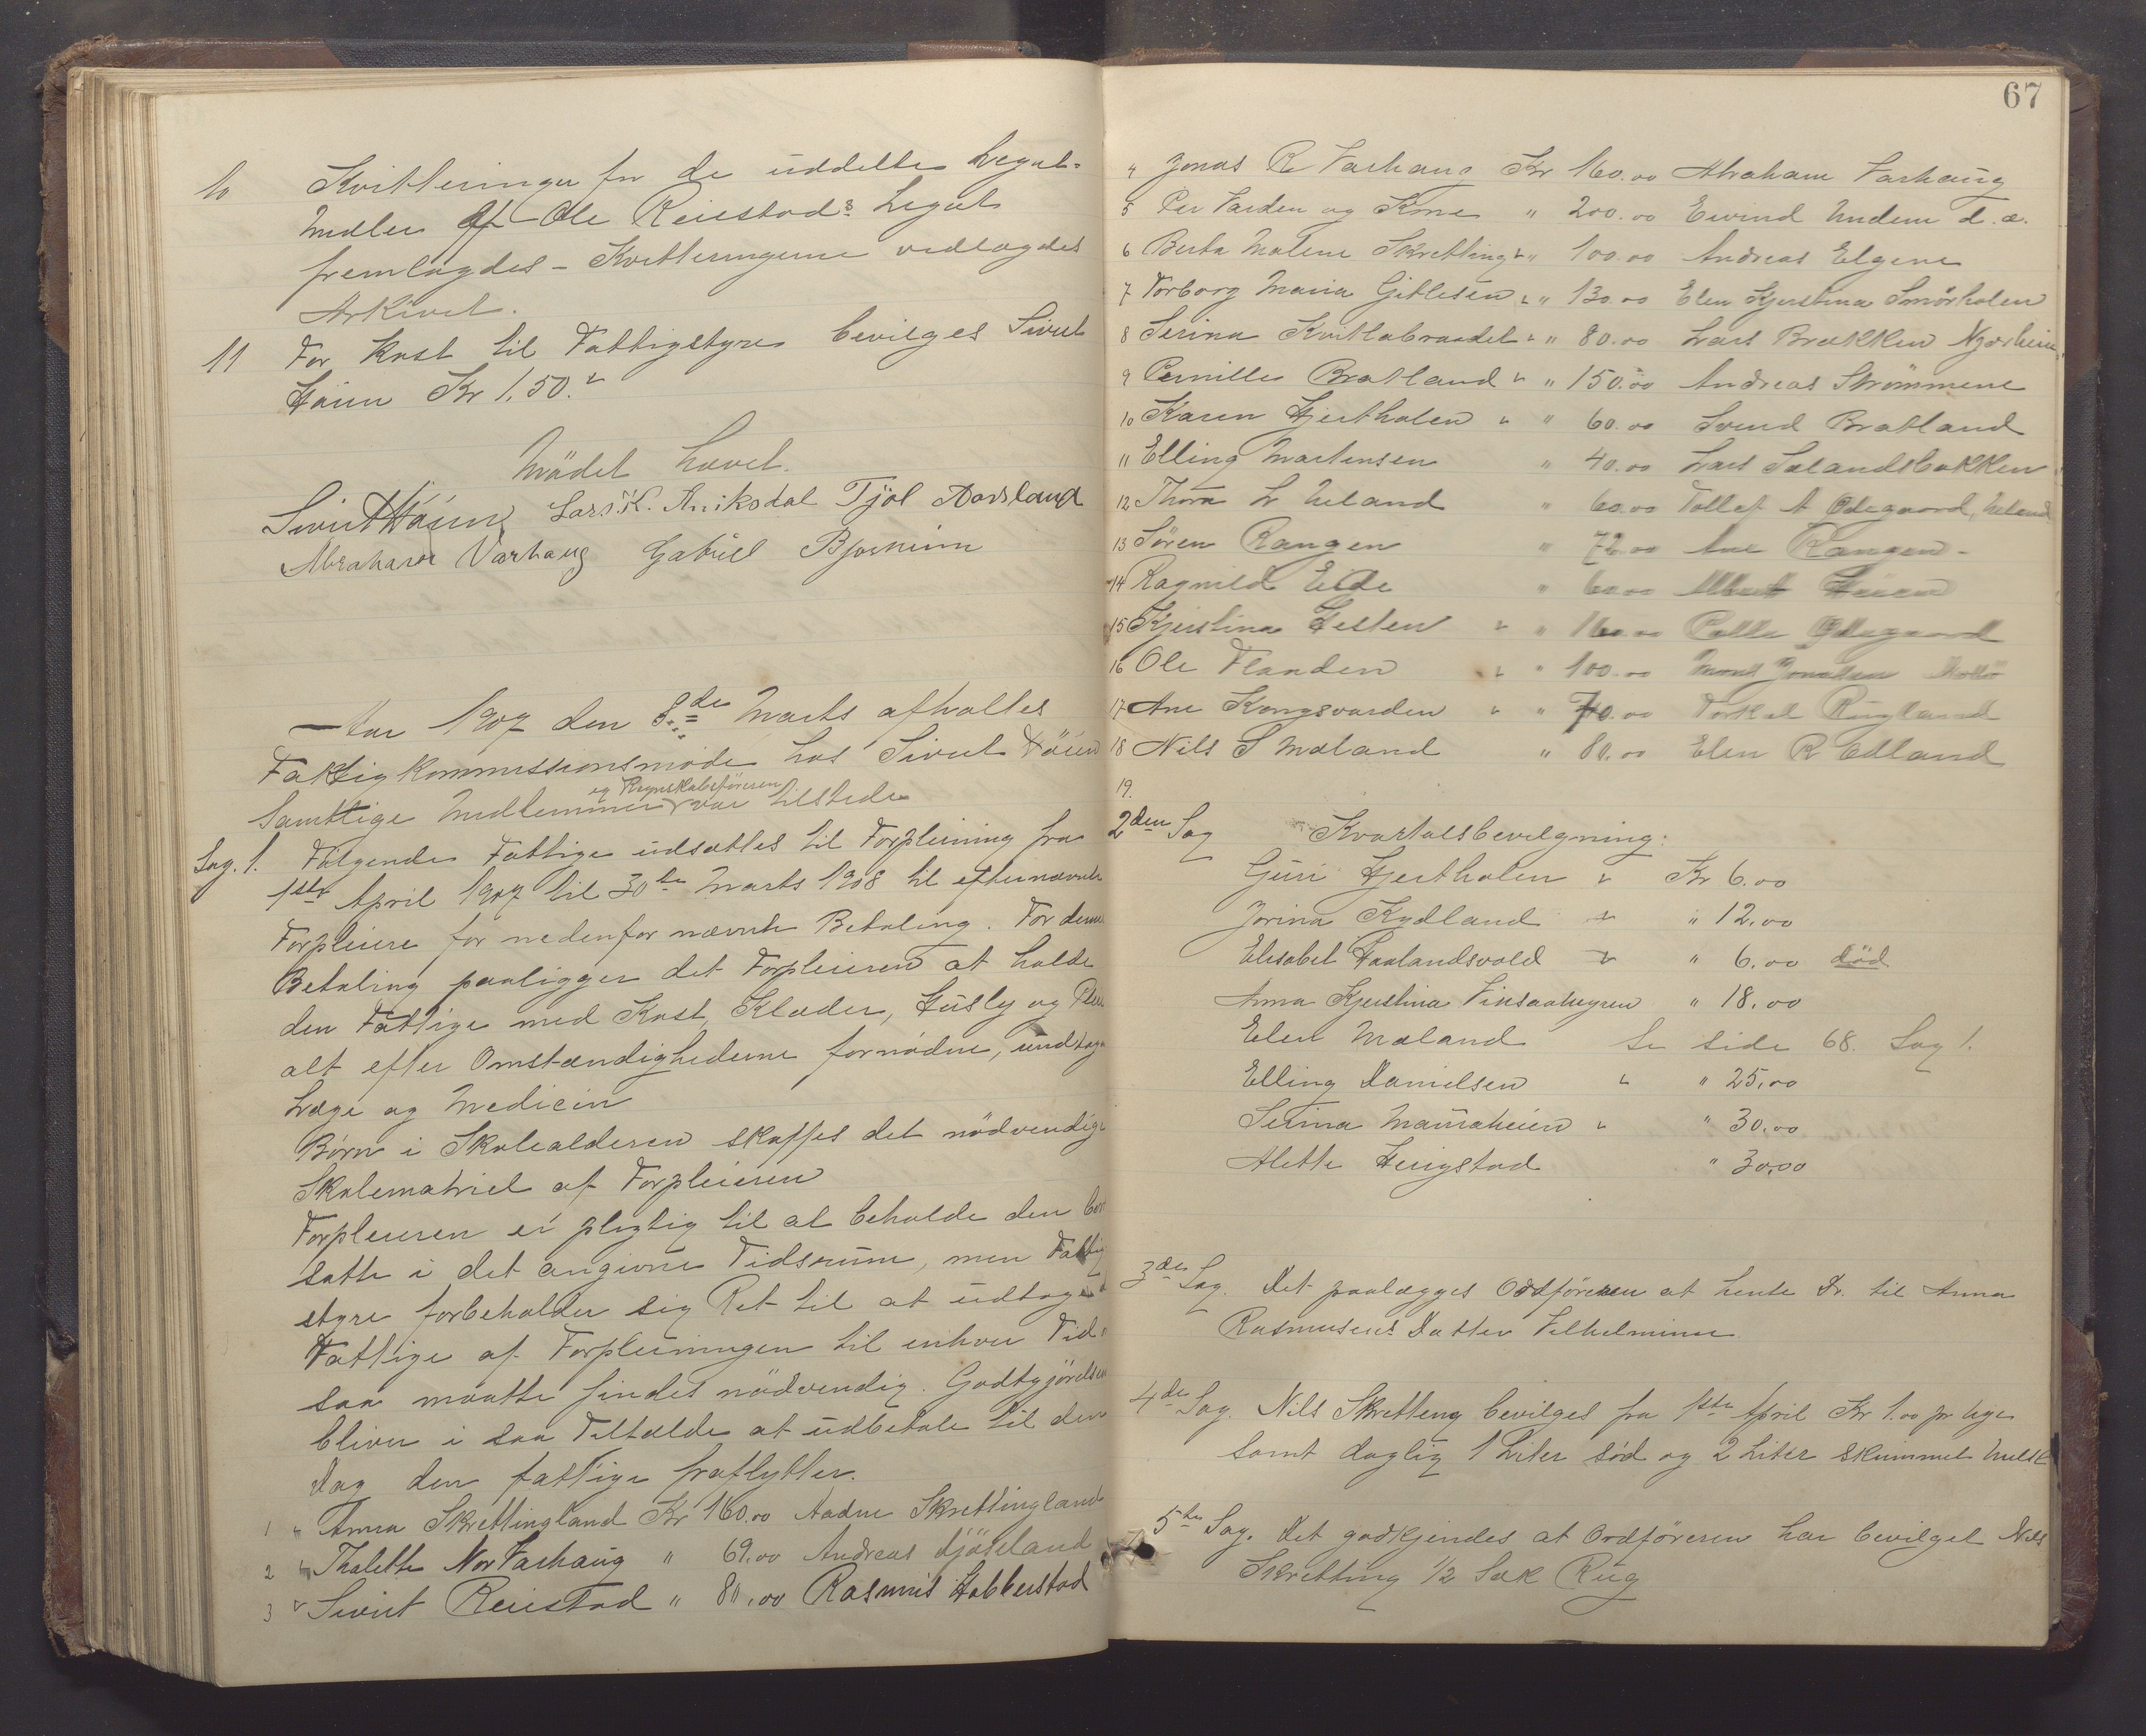 10 Kvitteringer for de uddelte Legat-
midler af Ole Reiestads Legat
fremlagdes - Kvitteringerne vedlagdes
Arkivet.
11 For Kost til Fattigstyre bevilges Sivert
Höien Kr 1,50.
Mödet hævet.
Sivert Höien Lars K. Aniksdal Tjöl Aarsland
Abraham Varhaug Gabriel Bjorheim
Aar 1907 den 8de Marts afholtes
Fattigkommissionsmöde hos Sivert Höien
og Regnskabsföreren
Samttige Medlemmer var tilstede
Sag. 1. Fölgende Fattige udsattes til Forpleining fra
1ste April 1907 til 30te Marts 1908 til efternævnte
Forpleiere for nedenfor nævnte Betaling. For denne
Betaling paaligger det Forpleieren at holde
den Fattige med Kost, Klæder, Husly og
alt efter Omstændighederne fornödne, undtagen
Læge og Medicin
Börn i Skolealderen skaffes det nödvendige
Skolematriel af Forpleieren
Forpleieren er pligtig til at beholde den bort
satte i det angivne Tidsrum, men Fattig
styre forbeholder sig Ret til at udtage
Fattige af Forpleiningen til enhver Tid
saa maatte findes nödvendig. Godtgjörelsen
bliver i saa Tilfælde at udbetale til den
Dag den fattige fraflytter.
1 " Anna Skrettingland Kr 160.00 Aadne Skrettingland
2 Thalette Nor Varhaug " 69.00 Andreas Njöseland
3 Sivert Reiestad " 80.00 Rasmus Hobberstad
67
4 Jonas R Varhaug Kr 160.00 Abraham Varhaug
5 Per Varden og Kone " 200.00 Eivind Undem d. æ.
6 Berta Malene Skretting " 100.00 Andreas Elgene
7 Torborg Maria Gitlesen " 130.00 Elen Kjerstina Smörholen
8 Serina Kvitlabraadet " 80.00 Lars Brækken Nærheim
9 Pernille Bratland " 150.00 Andreas Strömmene
10 Karen Hjertholen " 60.00 Svend Bratland
11 Elling Martensen " 40.00 Lars Sælandsbakken
12 Thora L Ueland " 60.00 Tollef A Ödegaard, Ueland
13 Sören Rangen " 72.00 Ane Rangen -
14 Ragnild Eide " 60.00
15 Kjerstina Hesten " 160.00 Ödegaard
16 Ole Flanden " 100.00 Jonassen
17 Ane Kongsvarden " 70.00 Torkel Rugland
18 Nils S Mæland " 80.00 Elen R Edland
19.
2den Sag Kvartalsbevilgning:
Guri Hjertholen Kr 6.00
Jorina Kydland " 12.00
Elisabet Haalandsvold " 6.00 död
Anna Kjerstina Vinsaahugren " 18.00
Elen Mæland Se side 68. Sag 1.
Elling Danielsen " 25.00
Serina Mauraheien " 30.00
Alette Herigstad " 30.00
3de Sag. Det paalægges Ordföreren at hente Dr. til Anna
Rasmusens Datter Vilhelmine.
4de Sag. Nils Skretting bevilges fra 1ste April Kr 1.00 pr Uge
samt daglig 1 Liter söd og 2 Liter skummet Melk
5te Sag. Det godkjendes at Ordföreren har bevilget Nils
Skretting 1/2 Sæk Rug